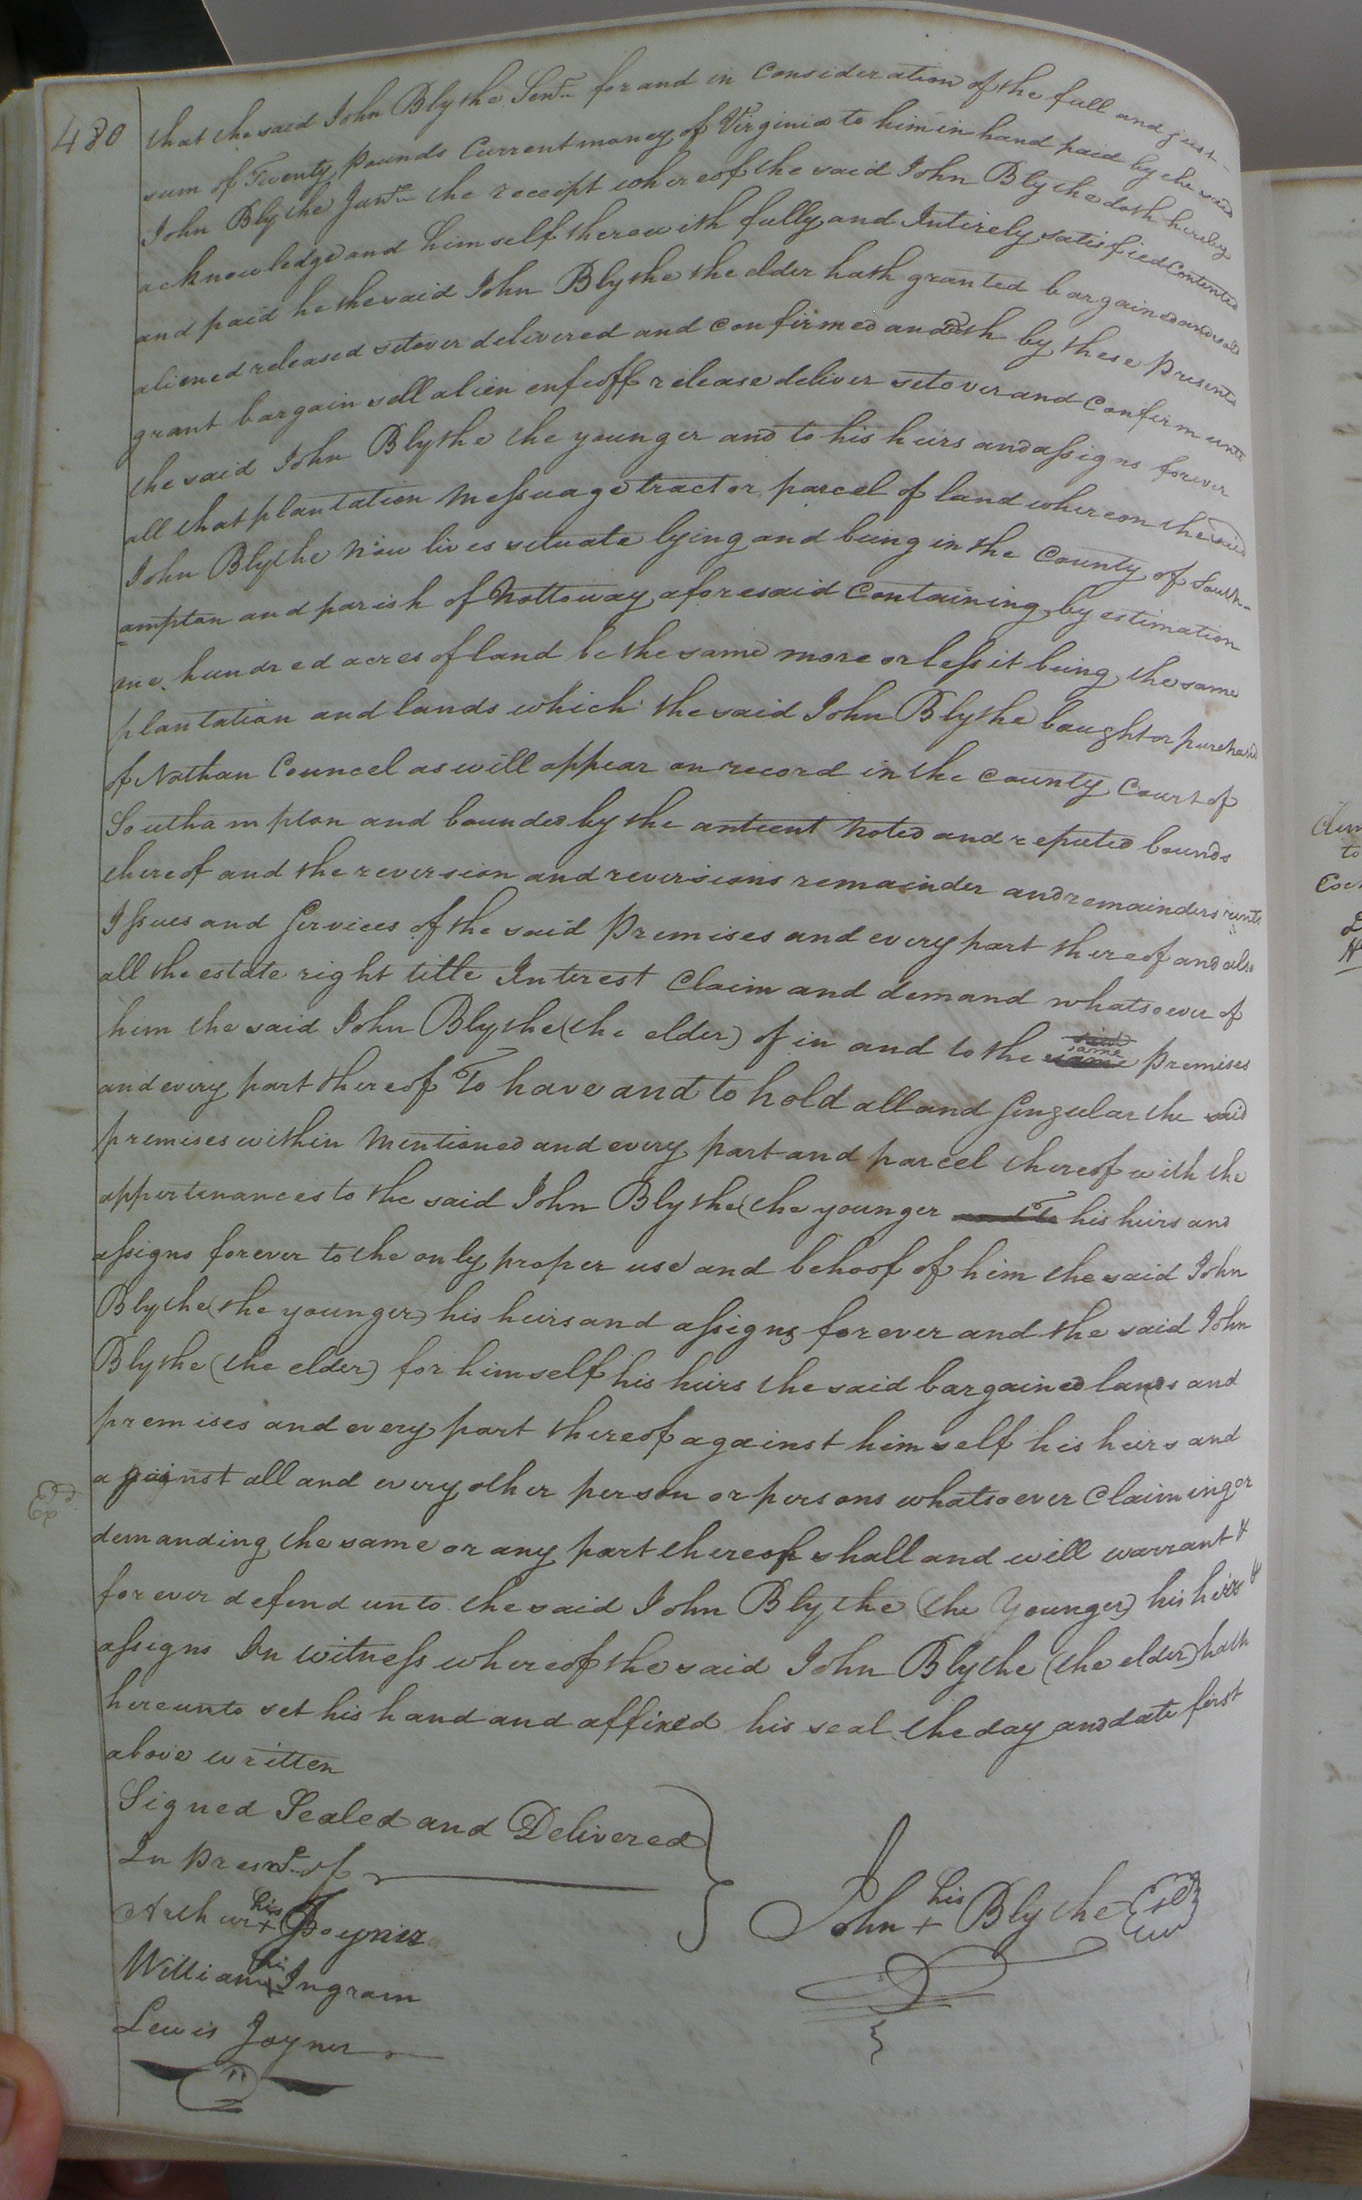 480
that the said John Blythe Senr. for and in Consideration of the full and just
sum of Twenty pounds Current money of Virginia to him in hand paid by the said
John Blythe Junr. the receipt whereof the said John Blythe doth hereby
acknowledge and himself therewith fully and Intirely satisfied Contented
and paid he the said John Blythe the elder hath granted bargained and sold
aliened released setover delivered and confirmed and doth by these Presents
grant bargain sell alien enfeoff release deliver setover and Confirm unto
the said John Blythe the younger and to his heirs and assigns forever
all that plantation Messuage tract or parcel of land whereon the said
John Blythe Now lives situate lying and being in the County of South-
ampton and parish of Nottoway aforesaid Containing by estimation
one hundred acres of land be the same more or less it being the same
plantation and lands which the said John Blythe bought or purchased
of Nathan Councel as will appear on record in the County Court of
Southampton and bounded by the antient Noted and reputed bounds
thereof and the reversion and reversions remainder and remainders rents
Issues and Services of the said Premises and every part thereof and also
all the estate right title Interest Claim and demand whatsoever of
him the said John Blythe (the elder) of in and to the same Premises
and every part thereof To have and to hold all and Singular the said
premises within Mentioned and every part and parcel thereof with the
appertenances to the said John Blythe (the younger his heirs and
assigns forever to the only proper use and behoof of him the said John
Blythe (the younger) his heirs and assigns forever and the said John
Blythe (the elder) for himself his heirs the said bargained lands and
premises and every part thereof against himself his heirs and
against all and every other person or persons whatsoever Claiming or
demanding the same or any part thereof shall and will warrant &
forever defend unto the said John Blythe (the Younger) his heirs &
assigns In witness whereof the said John Blythe (the elder) hath
hereunto set his hand and affixed his seal the day and date first
above written
Signed Sealed and Delivered
In Presne. of
Arthur his + Joyner
William his Ingram
Lewis Joyner
John his + Blythe
Exd.